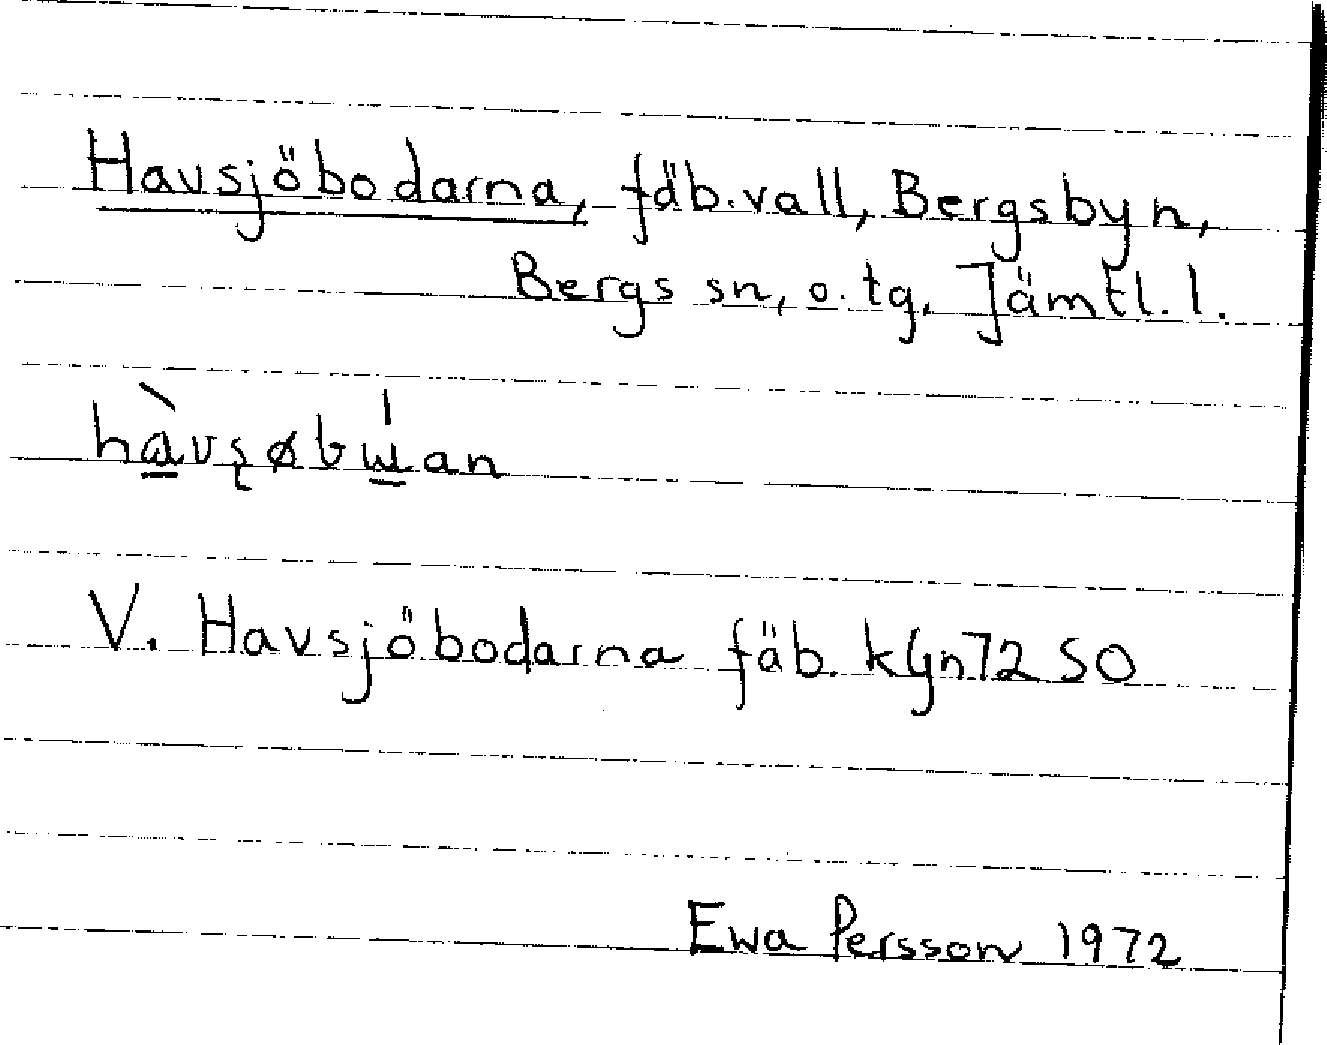 Havsjöbodarna, fäb.vall, Bergsbyn,
Bergs sn, o. tg. Jämtl. l.
hàvʂøbɯ́an
V. Havsjöbodarna fäb. kGn72 SO
Ewa Persson 1972